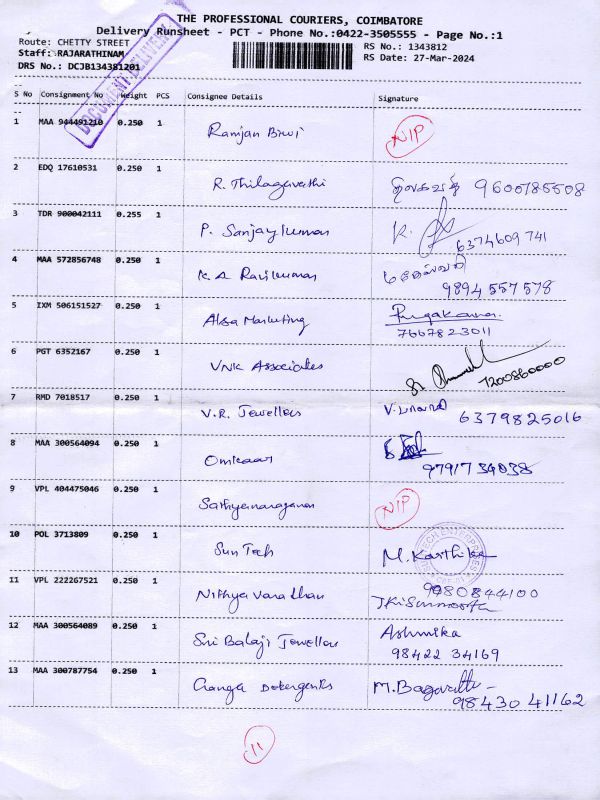 THE PROFESSIONAL COURIERS, COIMBATORE
Delivery Runsheet - PCT - Phone No.:0422-3505555 - Page No.:1
Route: CHETTY STREET
RS No.: 1343812
Staff: RAJARATHINAM
RS Date: 27-Mar-2024
DRS No.: DCJB134381201
DOCUMENT DELIVERY
S No Consignment No Weight PCS Consignee Details Signature
1 MAA 944491210 0.250 1 Ranjan Biwi NIP
2 EDQ 17610531 0.250 1 R. Thilagavathi திலகவதி 9600785508
3 TDR 900042111 0.255 1 P. Sanjay kumar K.
6374609741
4 MAA 572856748 0.250 1 K A Ravikumar
9894 557 578
5 IXM 506151527 0.250 1 Alsa Marketing
7667823011
6 PGT 6352167 0.250 1 VNK Associates
7200860000
7 RMD 7018517 0.250 1 V.R. Jewellers 6379825016
8 MAA 300564094 0.250 1 Omkaar
9791734038
9 VPL 404475046 0.250 1 Sathyanarayanan NIP
10 POL 3713809 0.250 1 Sun Tech M. Karthika
11 VPL 222267521 0.250 1 Nithya Varadhan 9980844100
12 MAA 300564089 0.250 1 Sri Balaji Jewellers Ashmika
98422 34169
13 MAA 300787754 0.250 1 Ganga Detergents M. Bagavathi
98430 41162
11